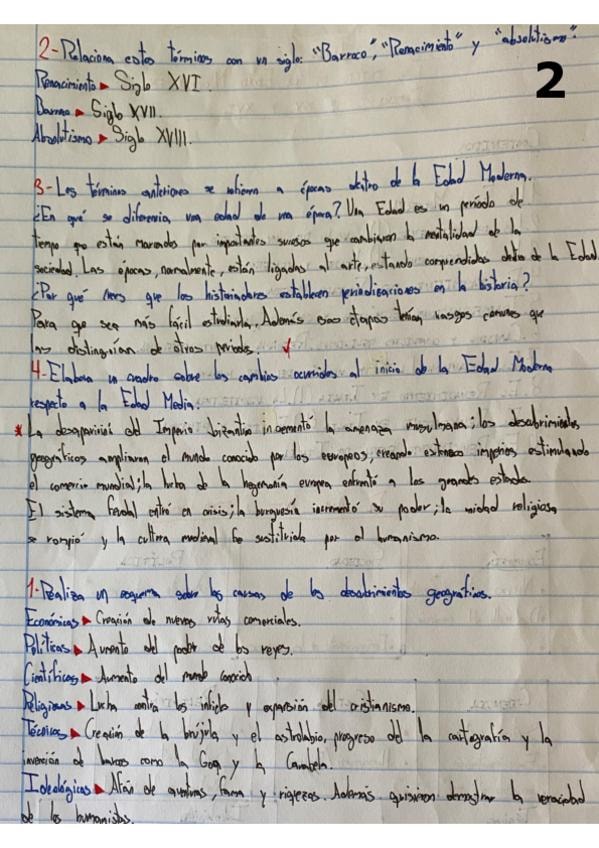 2-Relaciona estos términos con un siglo: "Barroco", "Renacimiento" y "absolutismo".
2
Renacimiento ► Siglo XVI.
Barroco ► Siglo XVII.
Absolutismo ► Siglo XVIII.
3-Los términos anteriores se refieren a épocas dentro de la Edad Moderna.
¿En qué se diferencia una edad de una época? Una Edad es un período de
tiempo que están marcados por importantes sucesos que cambiaron la mentalidad de la
sociedad. Las épocas, normalmente, están ligadas al arte, estando comprendidas dentro de la Edad.
¿Por qué crees que los historiadores establecen periodizaciones en la historia?
Para que sea más fácil estudiarla. Además esas etapas tenían rasgos comunes que
las distinguían de otros periodos.
4-Elabora un cuadro sobre los cambios ocurridos al inicio de la Edad Moderna
respecto a la Edad Media.
* La desaparición del Imperio bizantino incrementó la amenaza musulmana; los descubrimientos
geográficos ampliaron el mundo conocido por los europeos, creando extensos imperios estimulando
el comercio mundial; la lucha de la hegemonía europea enfrentó a los grandes estados.
El sistema feudal entró en crisis; la burguesía incrementó su poder; la unidad religiosa
se rompió y la cultura medieval fe sustituida por el humanismo.
1-Realiza un esquema sobre las causas de los descubrimientos geográficos.
Económicas ► Creación de nuevas rutas comerciales.
Políticas ► Aumento del poder de los reyes.
Científicas ► Aumento del mundo conocido
Religiosas ► Lucha contra los infieles y expansión del cristianismo.
Técnicas ► Creación de la brújula y el astrolabio, progreso del la cartografía y la
invención de barcos como la Coca y la Carabela.
Ideológicas ► Afán de aventuras, fama y riquezas. Además quisieron demostrar la veracidad
de los humanistas.